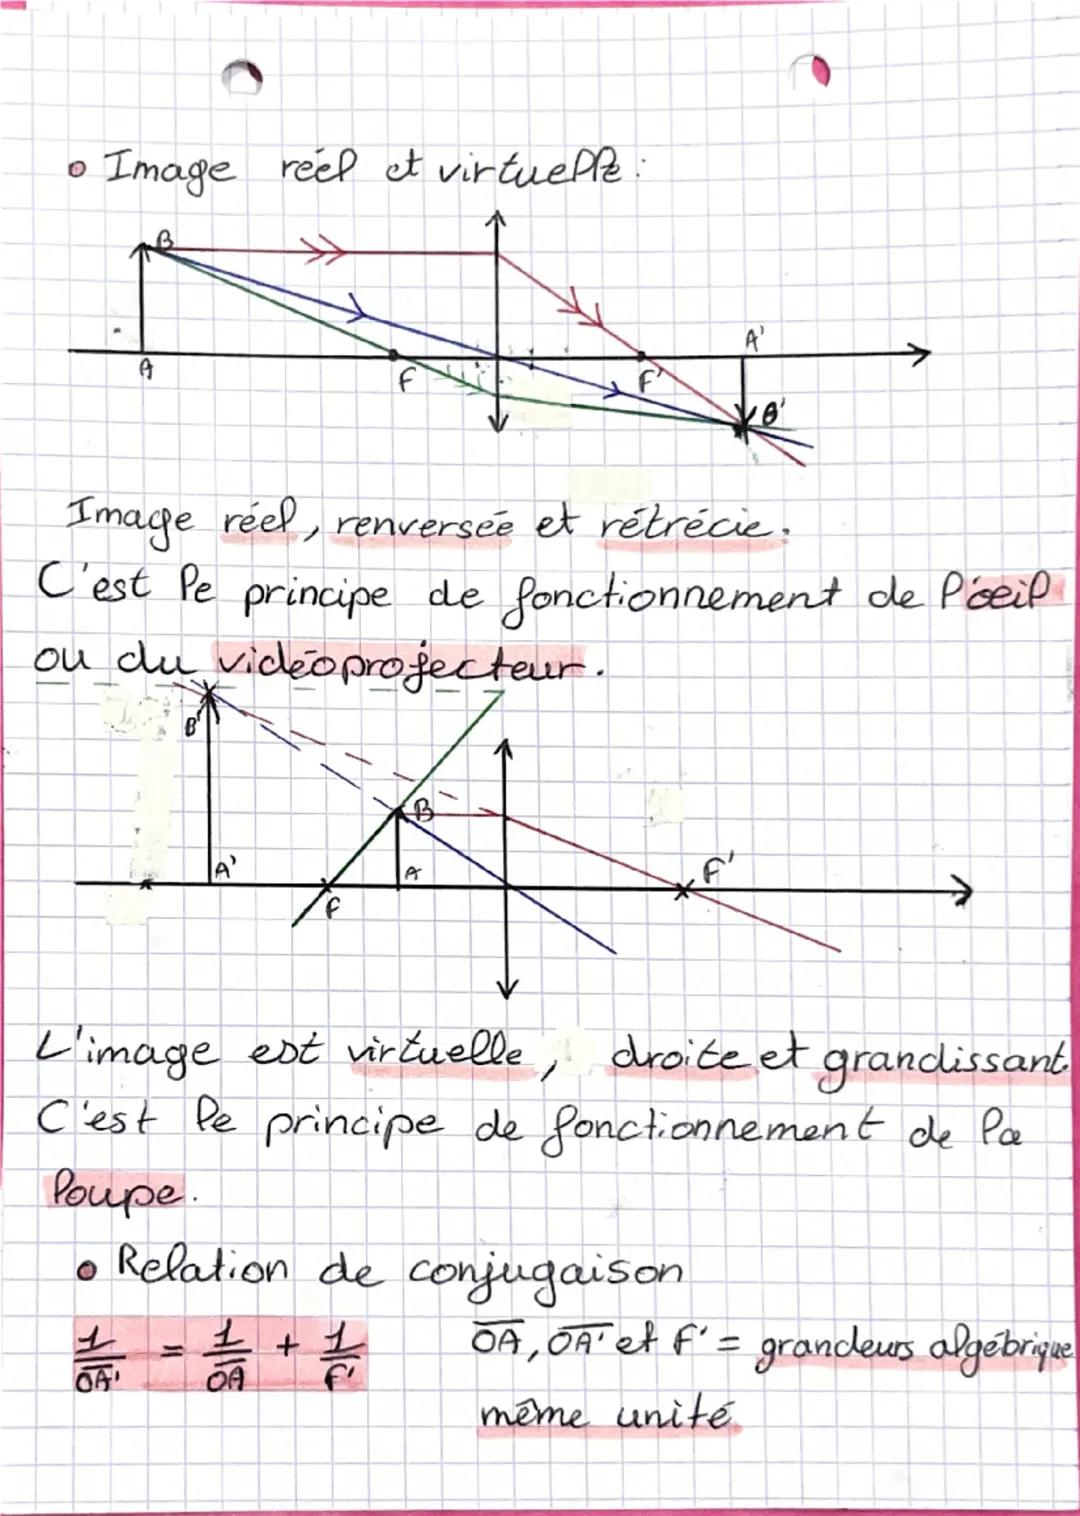 • Image réel et virtuelle :
B
A
F
F'
A'
B'
Image réel, renversée et rétrécie.
C'est le principe de fonctionnement de l'oeil
ou du vidéoprojecteur.
B'
B
A'
A
F
F'
L'image est virtuelle, droite et grandissant.
C'est le principe de fonctionnement de la
loupe.
• Relation de conjugaison
1/OA' = 1/OA + 1/F'
OA, OA' et F' = grandeurs algébrique
même unité